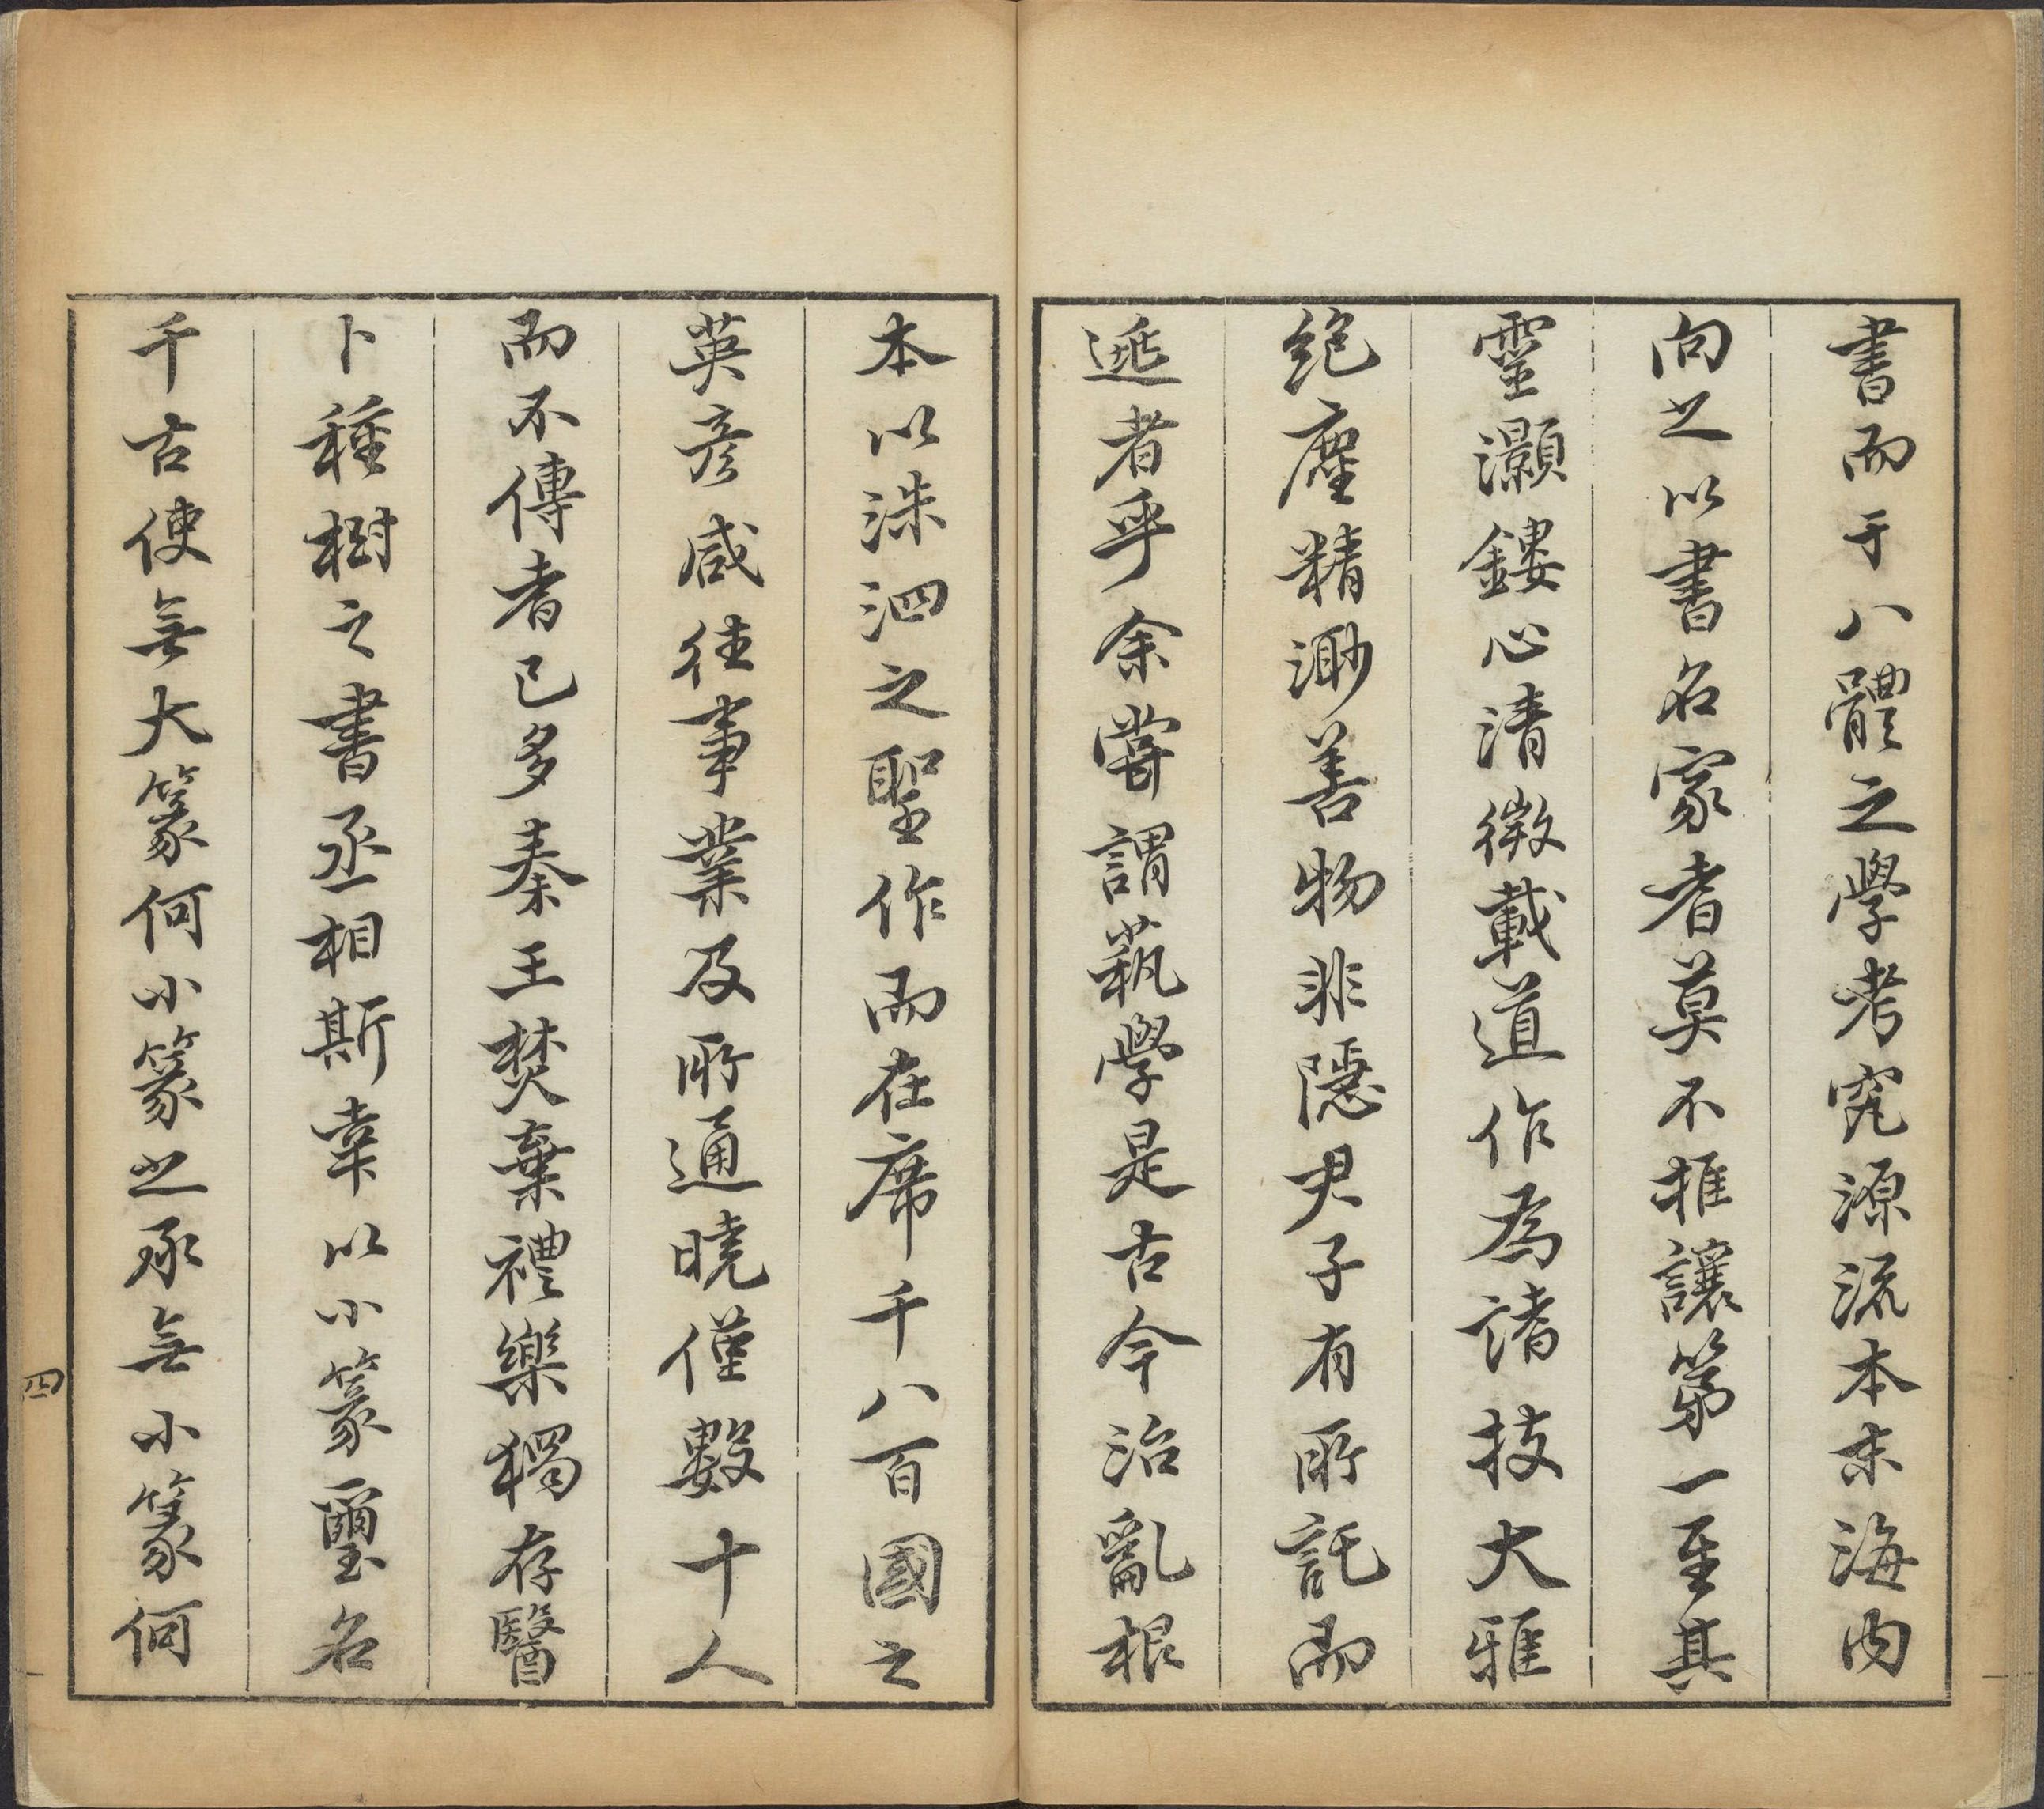 書而于八體之學考究源流本末海內
向之以書名家者莫不推讓第一至其
靈灝鏤心清微載道作為諸技大雅
絕塵精渺善物非隱君子有所託而
遯者乎余嘗謂藝學是古今治亂根
本以洙泗之聖作而在席千八百國之
英彥咸往事業及所通曉僅數十人
而不傳者已多秦王焚棄禮樂獨存醫
卜種樹之書丞相斯幸以小篆璽名
千古使無大篆何小篆之承無小篆何
四